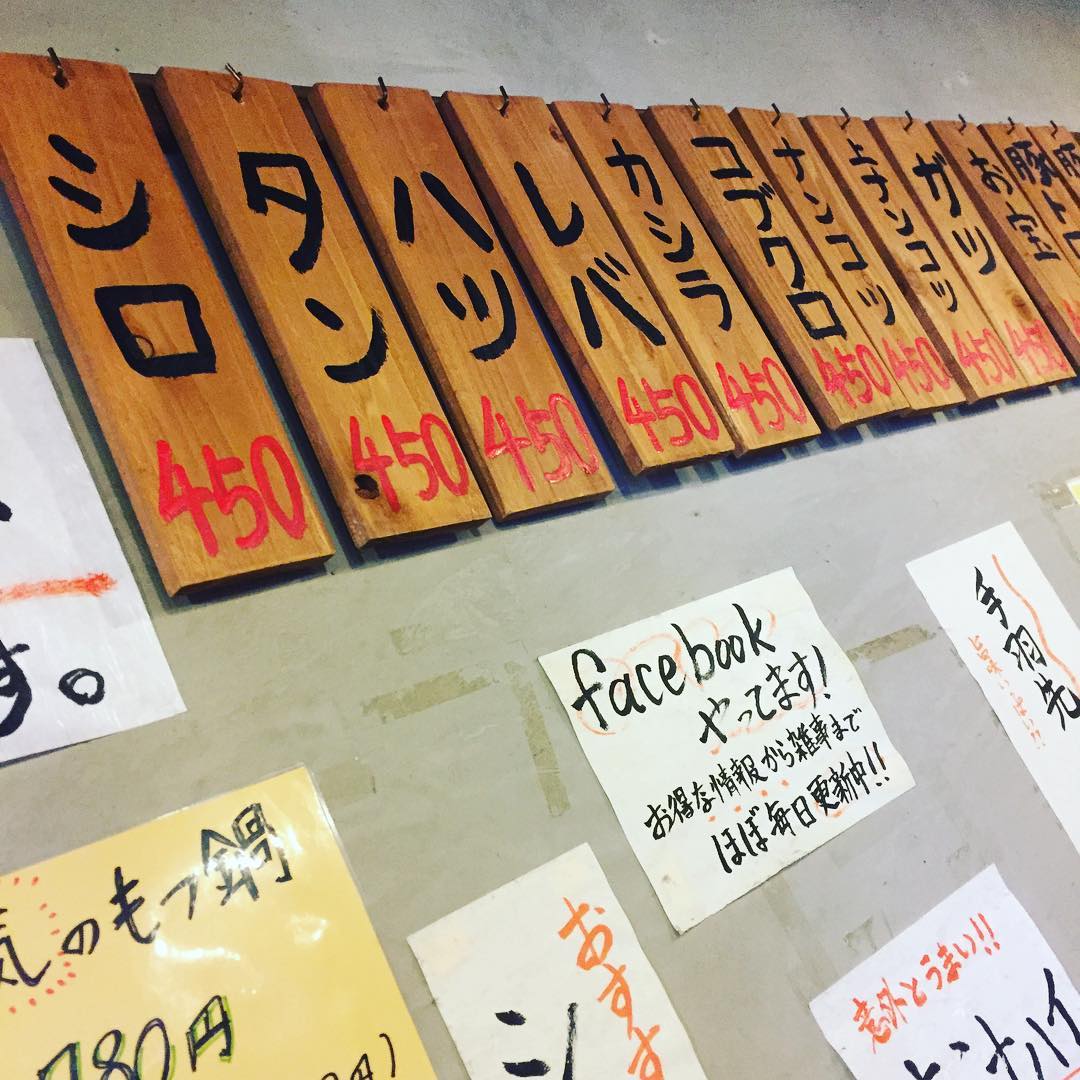 シロ
450
タン
450
ハツ
450
レバ
450
カシラ
450
コブクロ
450
ナンコツ
450
上ナンコツ
450
ガツ
450
お宝
豚ト
す。
facebook
やってます!
お得な情報から雑事まで
ほぼ毎日更新中!!
手羽先
旨味いっぱい!!
気のもつ鍋
780円
円)
おすす
シ
意外とうまい!!